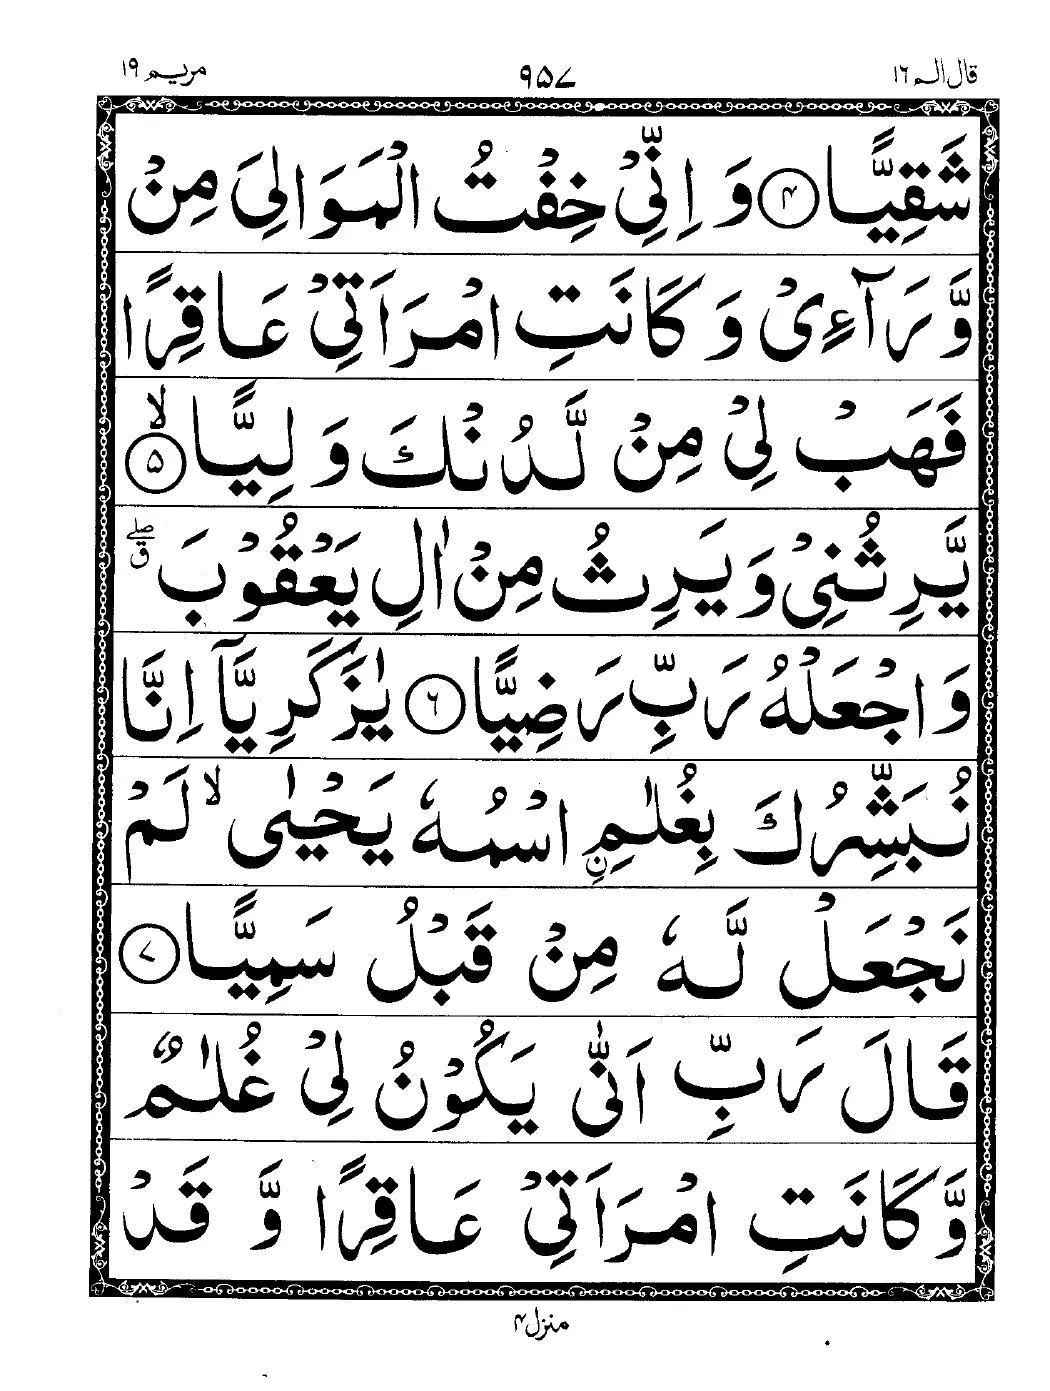 قال الم ١٦
٩٥٧
مريم ١٩
شَقِيًّا ﴿۴﴾ وَ اِنِّیْ خِفْتُ الْمَوَالِیَ مِنْ
وَّرَآءِیْ وَ كَانَتِ امْرَاَتِیْ عَاقِرًا
فَهَبْ لِیْ مِنْ لَّدُنْكَ وَلِیًّا ﴿۵﴾ ۙ
یَّرِثُنِیْ وَ یَرِثُ مِنْ اٰلِ یَعْقُوْبَ ۖق
وَ اجْعَلْهُ رَبِّ رَضِیًّا ﴿۶﴾ یٰزَكَرِیَّاۤ اِنَّا
نُبَشِّرُكَ بِغُلٰمِ ِ۟اسْمُهٗ یَحْیٰی ۙ لَمْ
نَجْعَلْ لَّهٗ مِنْ قَبْلُ سَمِیًّا ﴿۷﴾
قَالَ رَبِّ اَنّٰی یَكُوْنُ لِیْ غُلٰمٌ
وَّ كَانَتِ امْرَاَتِیْ عَاقِرًا وَّ قَدْ
منزل ۴